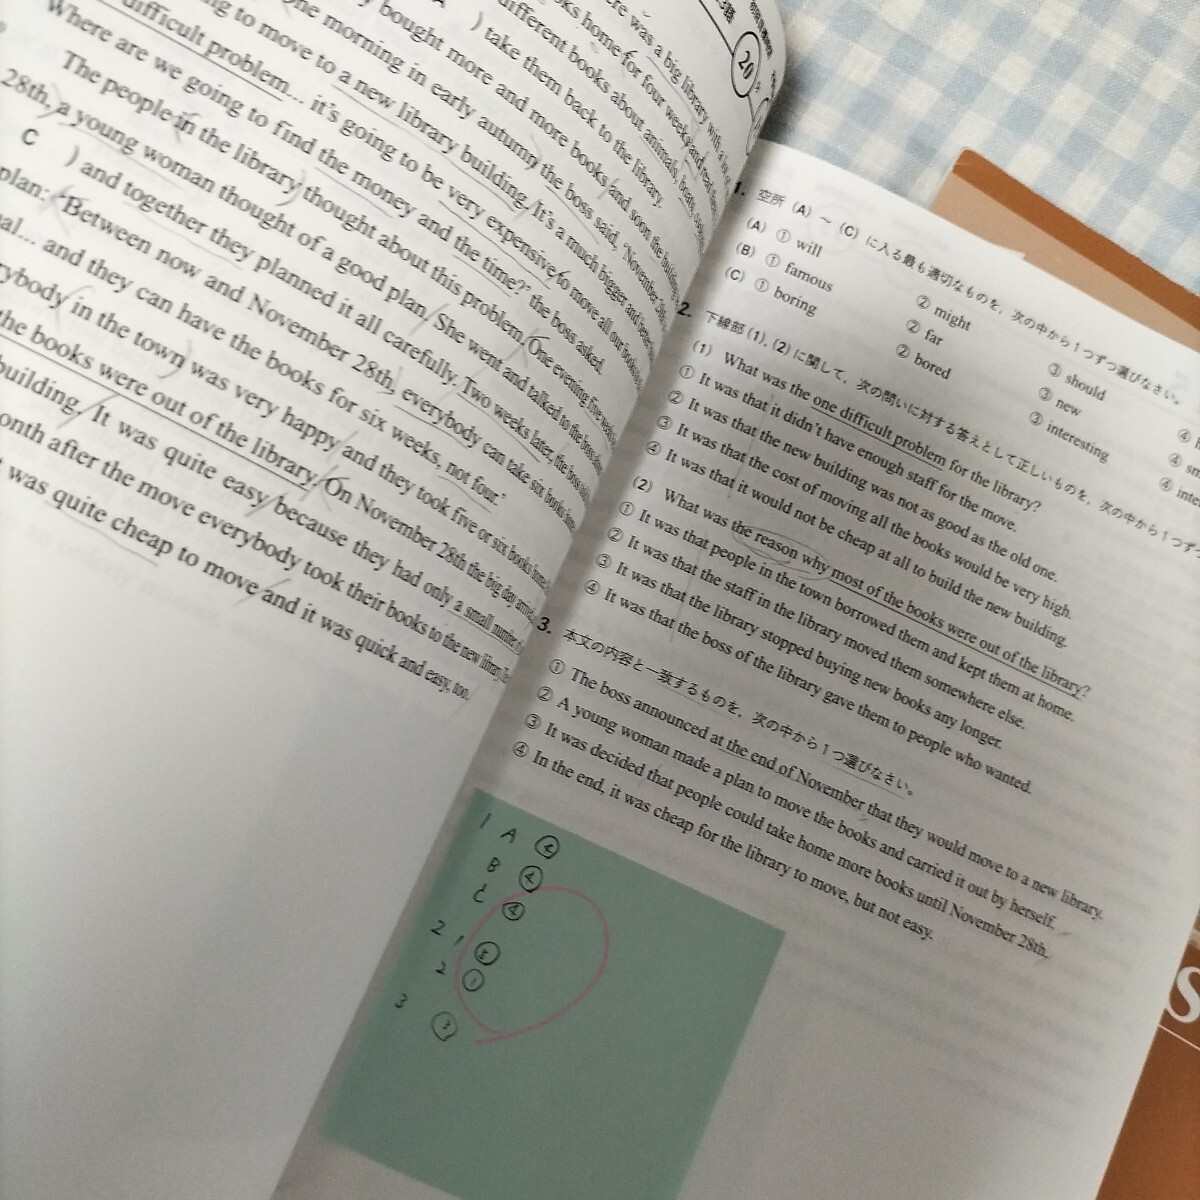 ere was a big library with a lo
ks home for four weeks and read them
different books about animals, boats,
) take them back to the library.
bought more and more books and soon the building
One morning in early autumn, the boss said, "November 28th
ng to move to a new library building. It's a much bigger and better
difficult problem... it's going to be very expensive to move all our books to
Where are we going to find the money and the time?" the boss asked.
The people in the library thought about this problem. One evening five weeks
28th, a young woman thought of a good plan. She went and talked to the boss about
C ) and together they planned it all carefully. Two weeks later, the boss
plan: "Between now and November 28th, everybody can take six books home
al... and they can have the books for six weeks, not four."
rybody in the town was very happy and they took five or six books home
the books were out of the library. On November 28th the big day arrived
building. It was quite easy because they had only a small number
onth after the move everybody took their books to the new library.
was quite cheap to move and it was quick and easy, too.
20
1. 空所 (A) ~ (C) に入る最も適切なものを, 次の中から1つずつ選びなさい。
(A) ① will ② might ③ should ④
(B) ① famous ② far ③ new ④ sm
(C) ① boring ② bored ③ interesting ④ inte
2. 下線部 (1), (2) に関して, 次の問いに対する答えとして正しいものを, 次の中から1つずつ
(1) What was the one difficult problem for the library?
① It was that it didn't have enough staff for the move.
② It was that the new building was not as good as the old one.
③ It was that the cost of moving all the books would be very high.
④ It was that it would not be cheap at all to build the new building.
(2) What was the reason why most of the books were out of the library?
① It was that people in the town borrowed them and kept them at home.
② It was that the staff in the library moved them somewhere else.
③ It was that the library stopped buying new books any longer.
④ It was that the boss of the library gave them to people who wanted.
3. 本文の内容と一致するものを, 次の中から1つ選びなさい。
① The boss announced at the end of November that they would move to a new library.
② A young woman made a plan to move the books and carried it out by herself.
③ It was decided that people could take home more books until November 28th.
④ In the end, it was cheap for the library to move, but not easy.
1 A ④
B ④
C ④
2 1 ③
2 ①
3 ③
S